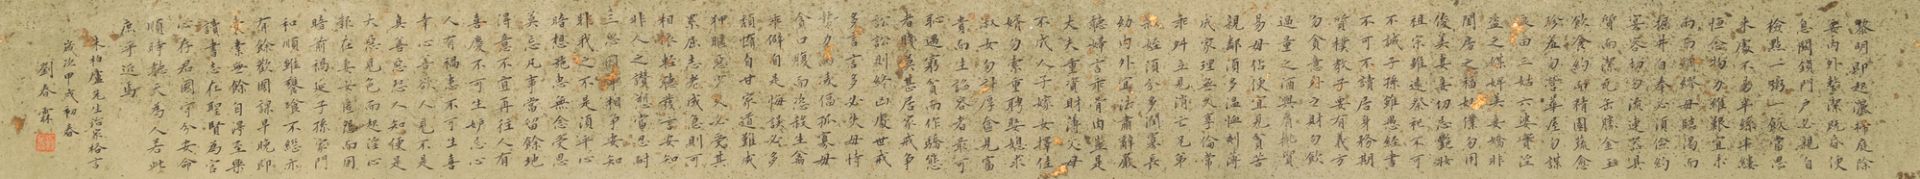 黎明即起灑掃庭除
要內外整潔既昏便
息關鎖門戶必親自
檢點一粥一飯當思
來處不易半絲半縷
恒念物力維艱宜未
雨而綢繆毋臨渴而
掘井自奉必須儉約
宴客切勿流連器具
質而潔瓦缶勝金玉
飲食約而精園蔬愈
珍羞勿營華屋勿謀
良田三姑六婆實淫
盜之媒婢美妾嬌非
閨房之福奴僕勿用
俊美妻妾切忌豔妝
祖宗雖遠祭祀不可
不誠子孫雖愚經書
不可不讀居身務期
質樸教子要有義方
勿貪意外之財勿飲
過量之酒與肩挑貿
易毋佔便宜見貧苦
親鄰須多溫恤刻薄
成家理無久享倫常
乖舛立見消亡兄弟
叔姪須分多潤寡長
幼內外宜法肅辭嚴
聽婦言乖骨肉豈是
丈夫重資財薄父母
不成人子嫁女擇佳
婿勿索重聘娶媳求
淑女勿計厚奩見富
貴而生諂容者最可
恥遇窮貧而作驕態
者賤莫甚居家戒爭
訟訟則終凶處世戒
多言言多必失毋恃
勢力而凌逼孤寡毋
貪口腹而恣殺生禽
乖僻自是悔誤必多
頹惰自甘家道難成
狎暱惡少久必受其
累屈志老成急則可
相依輕聽發言安知
非人之譖愬當忍耐
三思因事相爭安知
非我之不是須平心
暗想施惠無念受恩
莫忘凡事當留餘地
得意不宜再往人有
喜慶不可生妒忌心
人有禍患不可生喜
幸心善欲人見不是
真善惡恐人知便是
大惡見色而起淫心
報在妻女匿怨而用
暗箭禍延子孫家門
和順雖饔飧不繼亦
有餘歡國課早完即
囊橐無餘自得至樂
讀書志在聖賢為官
心存君國守分安命
順時聽天為人若此
庶乎近焉
朱柏廬先生治家格言
歲次甲戌初春
劉春霖